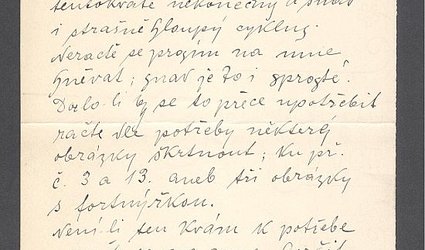 tentokráte nekonečný a snad
i strašně hloupý cyklus.
Neračte se prosím na mne
hněvat; snad je to i sprosté.
Dalo-li by se to přece upotřebit
račte dle potřeby některé
obrázky škrtnout; ku př.
č. 3 a 13. aneb tři obrázky
s fortnýřkou.
Není-li ten krám k potřebě